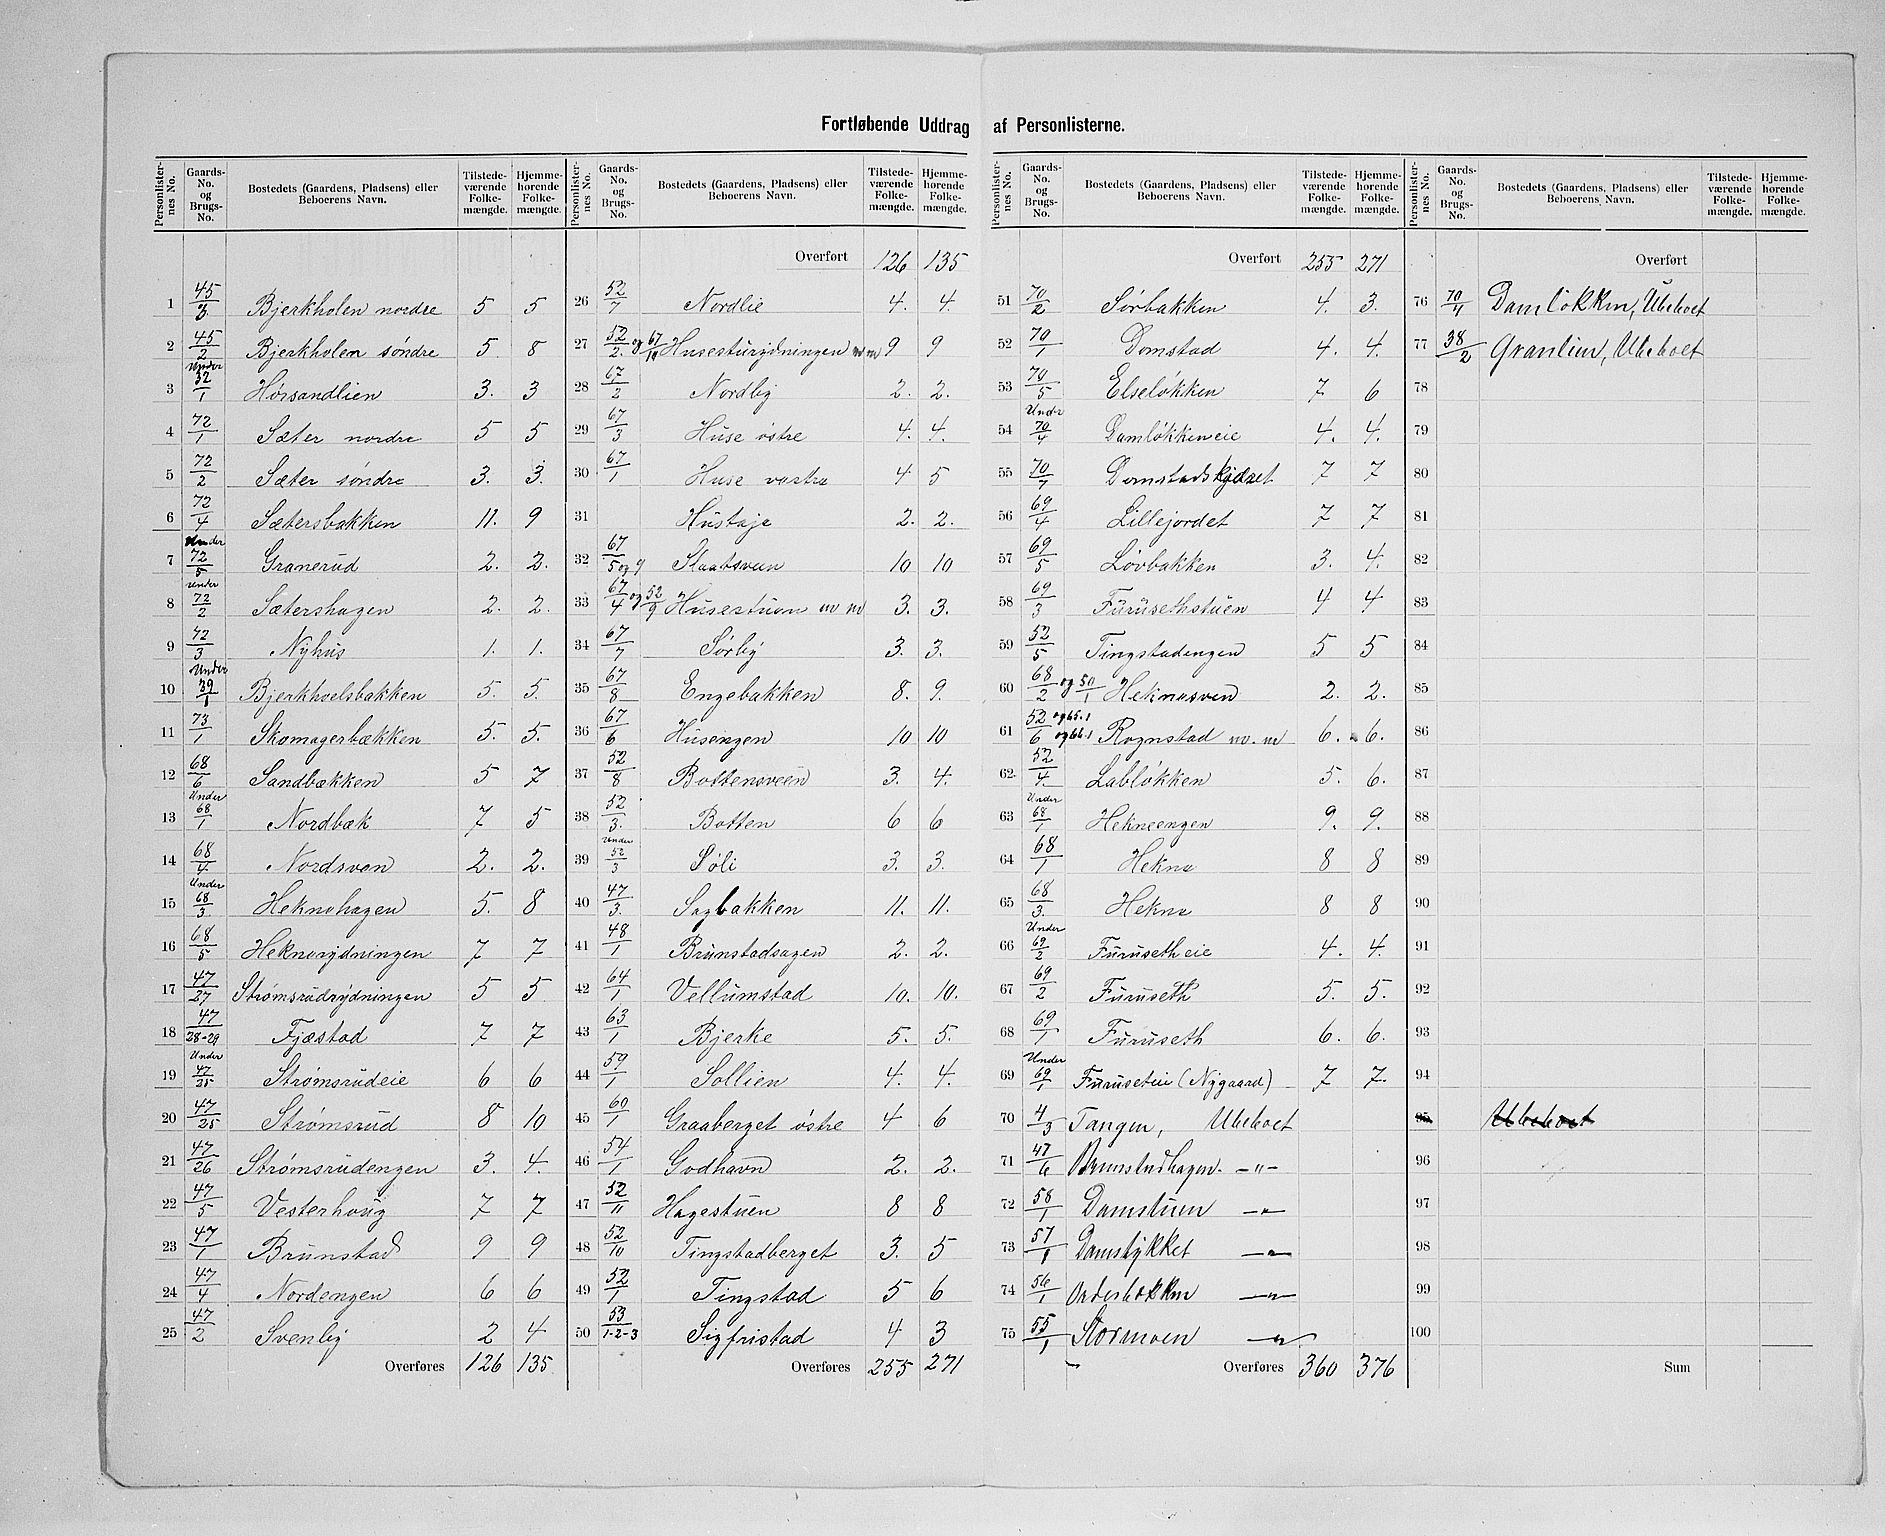 Fortløbende Uddrag af Personlisterne.
Personlisternes No. | Gaards-No. og Brugs-No. | Bostedets (Gaardens, Pladsens) eller Beboerens Navn. | Tilstedeværende Folkemængde. | Hjemmehørende Folkemængde.
1 45/3 Bjerkholen nordre 5 5
2 45/2 Bjerkholen søndre 5 8
3 Under 32/1 Hørsandlien 3. 3
4 72/1 Sæter nordre 5 5
5 72/2 Sæter søndre 3. 3.
6 72/4 Sætersbakken 11. 9
7 Under 72/5 Granerud 2. 2.
8 Under 72/2 Sætershagen 2. 2.
9 72/3 Nyhus 1. 1.
10 Under 39/1 Bjerkhoelsbakken 5. 5.
11 73/1 Skomagerbækken 5. 5.
12 68/6 Sandbækken 5 7
13 Under 68/1 Nordbæk 7 5
14 68/4 Nordsven 2. 2.
15 Under 68/3. Heknehagen 5. 8
16 68/5 Heknerydningen 7 7
17 47/27 Strømsrudrydningen 5 5
18 47/28-29 Fjæstad 7 7
19 Under 47/25 Strømsrudeie 6 6
20 47/25 Strømsrud 8 10
21 47/26 Strømsrudengen 3. 4.
22 47/5 Vesterhoug 7 7
23 47/1 Brunstad 9 9
24 47/4 Nordengen 6 6
25 47/2 Svenby 2 4
Overføres 126 135
Personlisternes No. | Gaards-No. og Brugs-No. | Bostedets (Gaardens, Pladsens) eller Beboerens Navn. | Tilstedeværende Folkemængde. | Hjemmehørende Folkemængde.
Overført 126 135
26 52/7 Nordlie 4. 4.
27 52/2. og 67/10 Husesturydningen m m 9 9
28 67/2 Nordby 2. 2.
29 67/3 Huse østre 4. 4.
30 67/1 Huse vestre 4 5
31 Hustaje 2. 2.
32 67/5 og 9 Slaatsveen 10 10
33 67/4 og 52/9 Husestuen m m 3. 3.
34 67/7 Sørby 3. 3.
35 67/8 Engebakken 8. 9.
36 67/6 Husengen 10 10
37 52/8 Bottensveen 3. 4.
38 52/3. Botten 6 6
39 Under 52/3 Søli 3. 3.
40 47/3. Sagbakken 11. 11.
41 48/1 Brunstadsagen 2. 2.
42 64/1 Vellumstad 10. 10.
43 63/1 Bjerke 5. 5.
44 59/1 Sollien 4. 4.
45 60/1 Graaberget østre 4 6
46 54/1 Godhavn 2. 2.
47 52/11 Hagestuen 8 8
48 52/10 Tingstadberget 3. 5
49 52/1 Tingstad 5 6
50 53/1-2-3 Sigfristad 4 3
Overføres 255 271
Personlisternes No. | Gaards-No. og Brugs-No. | Bostedets (Gaardens, Pladsens) eller Beboerens Navn. | Tilstedeværende Folkemængde. | Hjemmehørende Folkemængde.
Overført 255 271
51 70/2 Sørbakken 4. 3.
52 70/1 Domstad 4. 4.
53 70/5 Elseløkken 7 6
54 Under 70/4 Damløkkeneie 4. 4.
55 70/7 Domstadskjæret 7 7
56 69/4 Lillejordet 7 7
57 69/5 Løvbakken 3. 4.
58 69/3 Furusethstuen 4 4
59 52/5 Tingstadengen 5 5
60 68/2 og 50/1 Heknesven 2. 2.
61 52/6 og 65.1 og 66.1 Rognstad m. m 6. 6.
62 52/4. Labløkken 5. 6.
63 Under 68/1 Hekneengen 9. 9.
64 68/1 Hekne 8 8
65 68/3. Hekne 8 8
66 Under 69/2 Furusetheie 4. 4.
67 69/2 Furuseth 5. 5.
68 69/1 Furuseth 6. 6.
69 Under 69/1 Furuseteie (Nygaard) 7 7.
70 4/3 Tangen, Ubeboet
71 47/6 Brunstadhagen. -"-
72 58/1 Damstuen -"-
73 57/1 Damstykket -"-
74 56/1 Ordesbækken -"-
75 55/1 Stormoen -"-
Overføres 360 376
Personlisternes No. | Gaards-No. og Brugs-No. | Bostedets (Gaardens, Pladsens) eller Beboerens Navn. | Tilstedeværende Folkemængde. | Hjemmehørende Folkemængde.
Overført
76 70/4 Damløkken, Ubeboet
77 38/2 Granlien, Ubeboet
78
79
80
81
82
83
84
85
86
87
88
89
90
91
92
93
94
95 Ubeboet
96
97
98
99
100
Sum